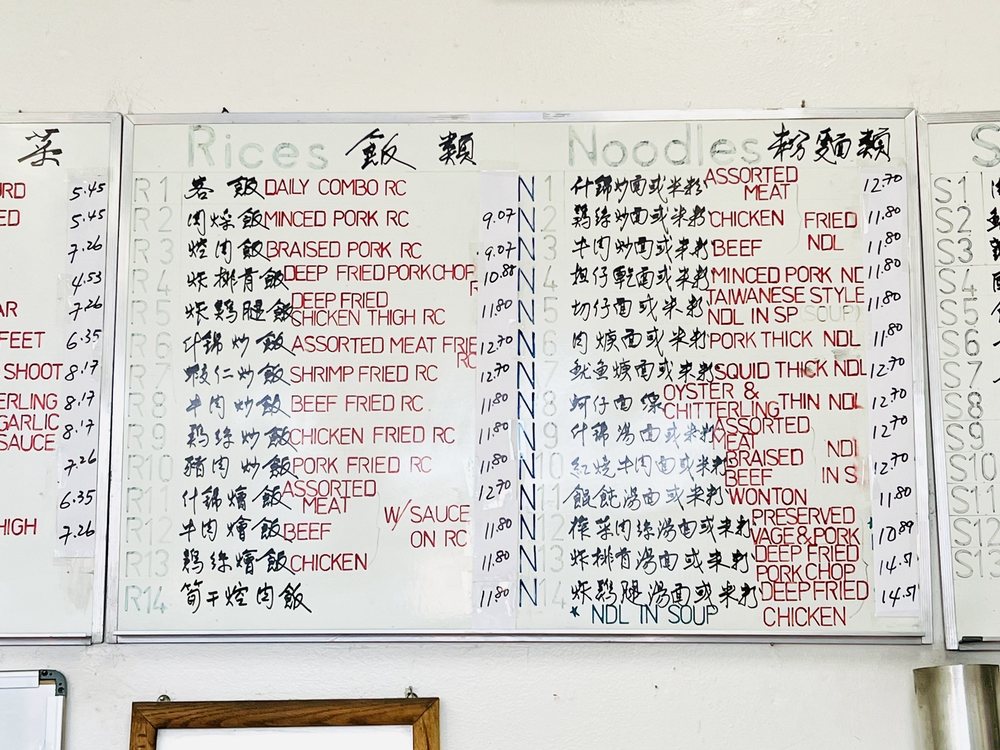 菜
URD 5.45
ED 5.45
7.26
4.53
AR 7.26
FEET 6.35
SHOOT 8.17
ERLING 8.17
GARLIC
SAUCE 8.17
7.26
6.35
HIGH 7.26
Rices 飯 類
R1 客 飯 DAILY COMBO RC
R2 肉燥飯 MINCED PORK RC 9.07
R3 焢肉飯 BRAISED PORK RC 9.07
R4 炸排骨飯 DEEP FRIED PORK CHOP R 10.88
R5 炸鷄腿飯 DEEP FRIED
CHICKEN THIGH RC 11.80
R6 什錦炒飯 ASSORTED MEAT FRIE
RC 12.70
R7 SHRIMP FRIED RC 12.70
R8 牛肉炒飯 BEEF FRIED RC 11.80
R9 鷄絲炒飯 CHICKEN FRIED RC 11.80
R10 豬肉炒飯 PORK FRIED RC 11.80
R11 什錦燴飯 ASSORTED
MEAT 12.70
W/SAUCE
ON RC
R12 牛肉燴飯 BEEF 11.80
R13 鷄絲燴飯 CHICKEN 11.80
R14 筍干焢肉飯 11.80
Noodles 粉麵類
N1 什錦炒面或米粉 ASSORTED
MEAT 12.70
N2 鷄絲炒面或米粉 CHICKEN 11.80
FRIED
NDL
N3 牛肉炒面或米粉 BEEF 11.80
N4 担仔乾面或米粉 MINCED PORK ND 11.80
N5 切仔面或米粉 TAIWANESE STYLE
NDL IN SP (SOUP) 11.80
N6 肉焿面或米粉 PORK THICK NDL 11.80
N7 魷魚焿面或米粉 SQUID THICK NDL 12.70
N8 蚵仔面線 OYSTER &
CHITTERLING THIN NDL 12.70
N9 什錦湯面或米粉 ASSORTED
MEAT NDL 12.70
N10 紅燒牛肉面或米粉 BRAISED
BEEF IN S 12.70
N11 餛飩湯面或米粉 WONTON 11.80
N12 榨菜肉絲湯面或米粉 PRESERVED
VAGE & PORK 10.89
N13 炸排骨湯面或米粉 DEEP FRIED
PORK CHOP 14.51
N14 炸鷄腿湯面或米粉 DEEP FRIED
CHICKEN 14.51
* NDL IN SOUP
S
S1
S2
S3
S4
S5
S6
S7
S8
S9
S10
S11
S12
S13